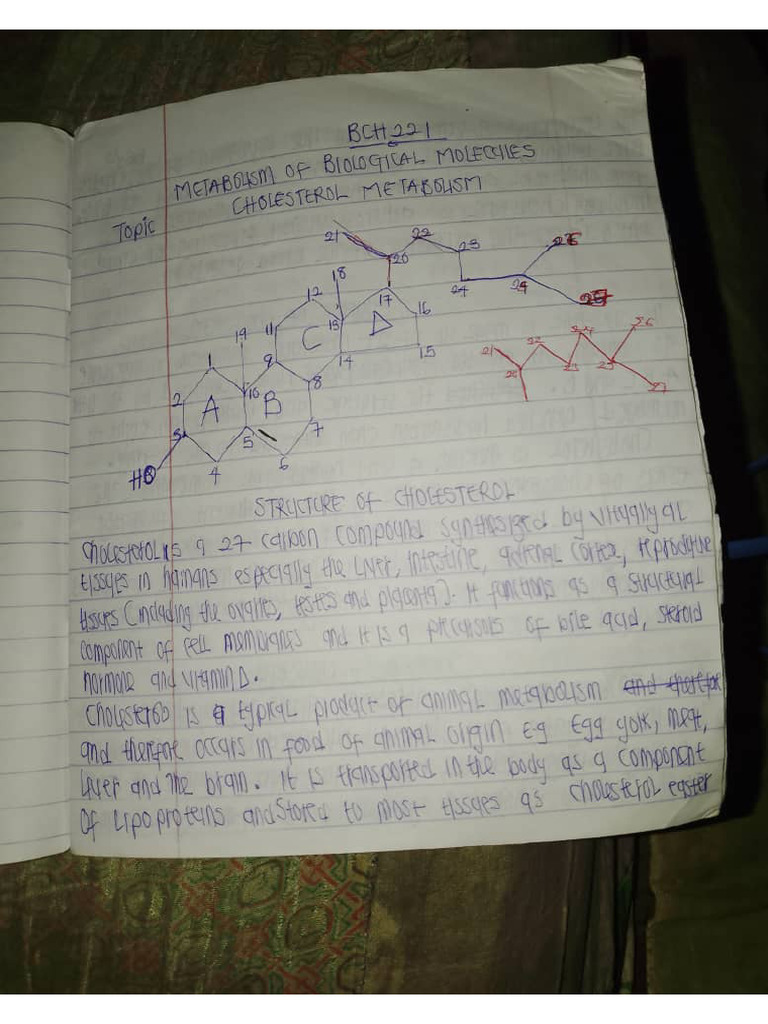 BCH 221
METABOLISM OF BIOLOGICAL MOLECULES
Topic CHOLESTEROL METABOLISM
21 22 23 26
20
18 24 25 27
12 17
19 11 C 13 D 16
1 9 14 15
2 A 10 B 8
3 5 7
HO 4 6
21 22 24 26
20 23 25 27
STRUCTURE OF CHOLESTEROL
Cholesterol is a 27 carbon compound synthesized by virtually al
tissues in humans especially the liver, intestine, adrenal cortex, reproductive
tissues (including the ovaries, testes and placenta). It functions as a structural
component of cell membranes and it is a precursors of bile acid, steroid
hormone and vitamin D.
Cholesterol is a typical product of animal metabolism and therefore
and therefore occurs in food of animal origin Eg Egg york, meat,
Liver and the brain. It is transported in the body as a component
Of Lipoproteins and stored to most tissues as cholesterol easter